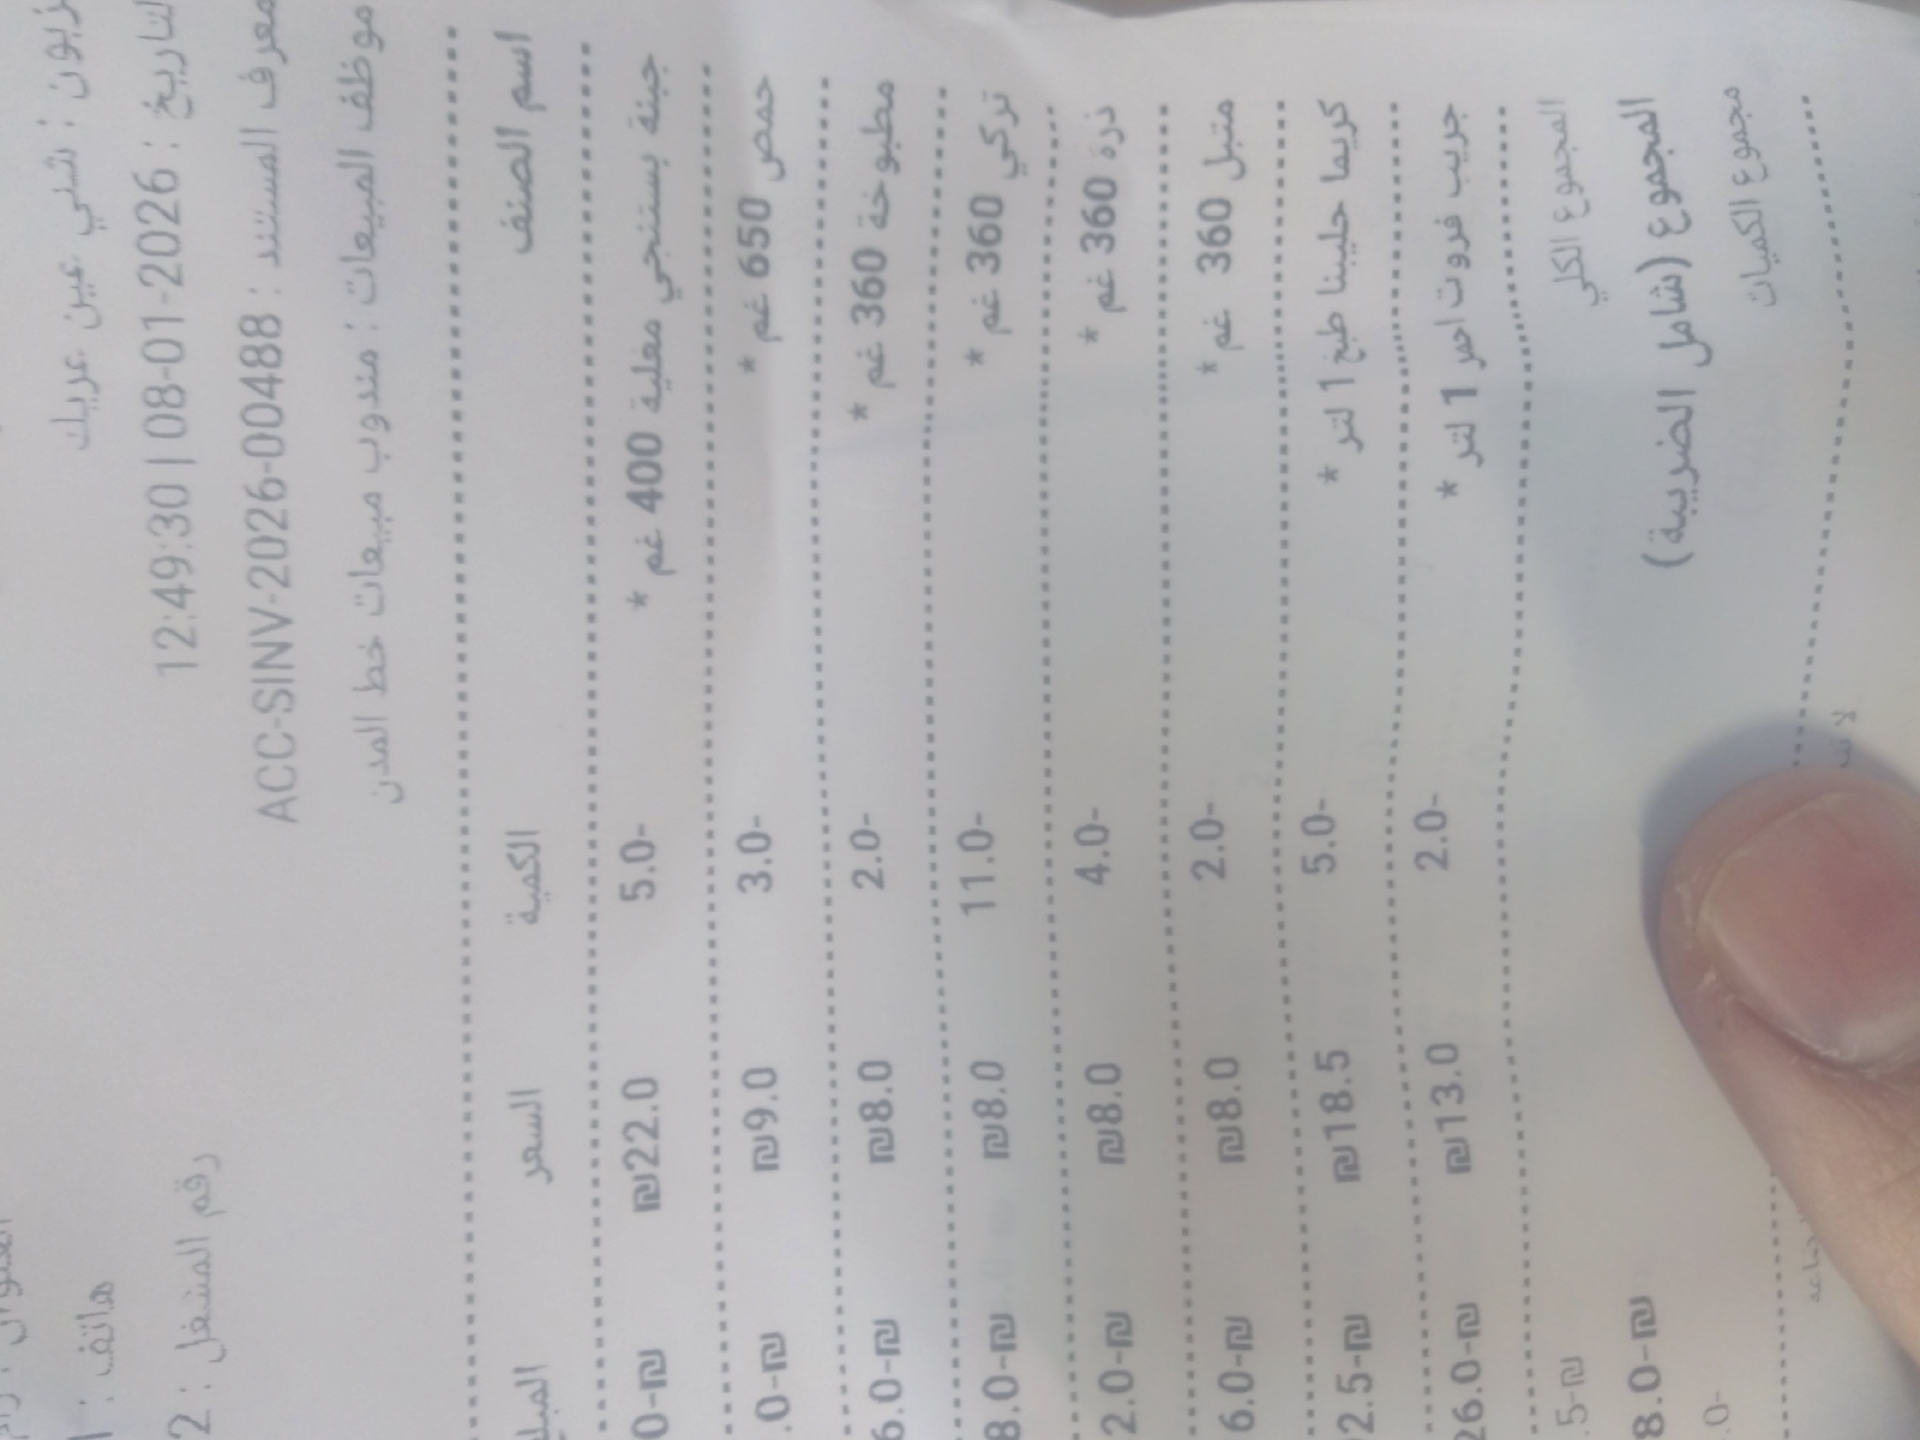 زبون : شلي عين عريك
هاتف :
التاريخ : 08-01-2026 | 12:49:30
رقم المشغل : 2
معرف المستند : ACC-SINV-2026-00488
موظف المبيعات : مندوب مبيعات خط المدن
اسم الصنف الكمية السعر
جبنة بستنجي مغلية 400 غم * 5.0- ₪22.0 0-₪
حمص 650 غم * 3.0- ₪9.0 .0-₪
مطبوخة 360 غم * 2.0- ₪8.0 6.0-₪
تركي 360 غم * 11.0- ₪8.0 8.0-₪
ذرة 360 غم * 4.0- ₪8.0 2.0-₪
متبل 360 غم * 2.0- ₪8.0 6.0-₪
كريما حليبنا طبخ 1 لتر * 5.0- ₪18.5 2.5-₪
جريب فروت احمر 1 لتر * 2.0- ₪13.0 26.0-₪
المجموع الكلي .5-₪
المجموع (شامل الضريبة) 8.0-₪
مجموع الكميات .0-